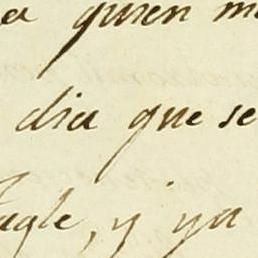 a quien me
dia que se
agle, y ya